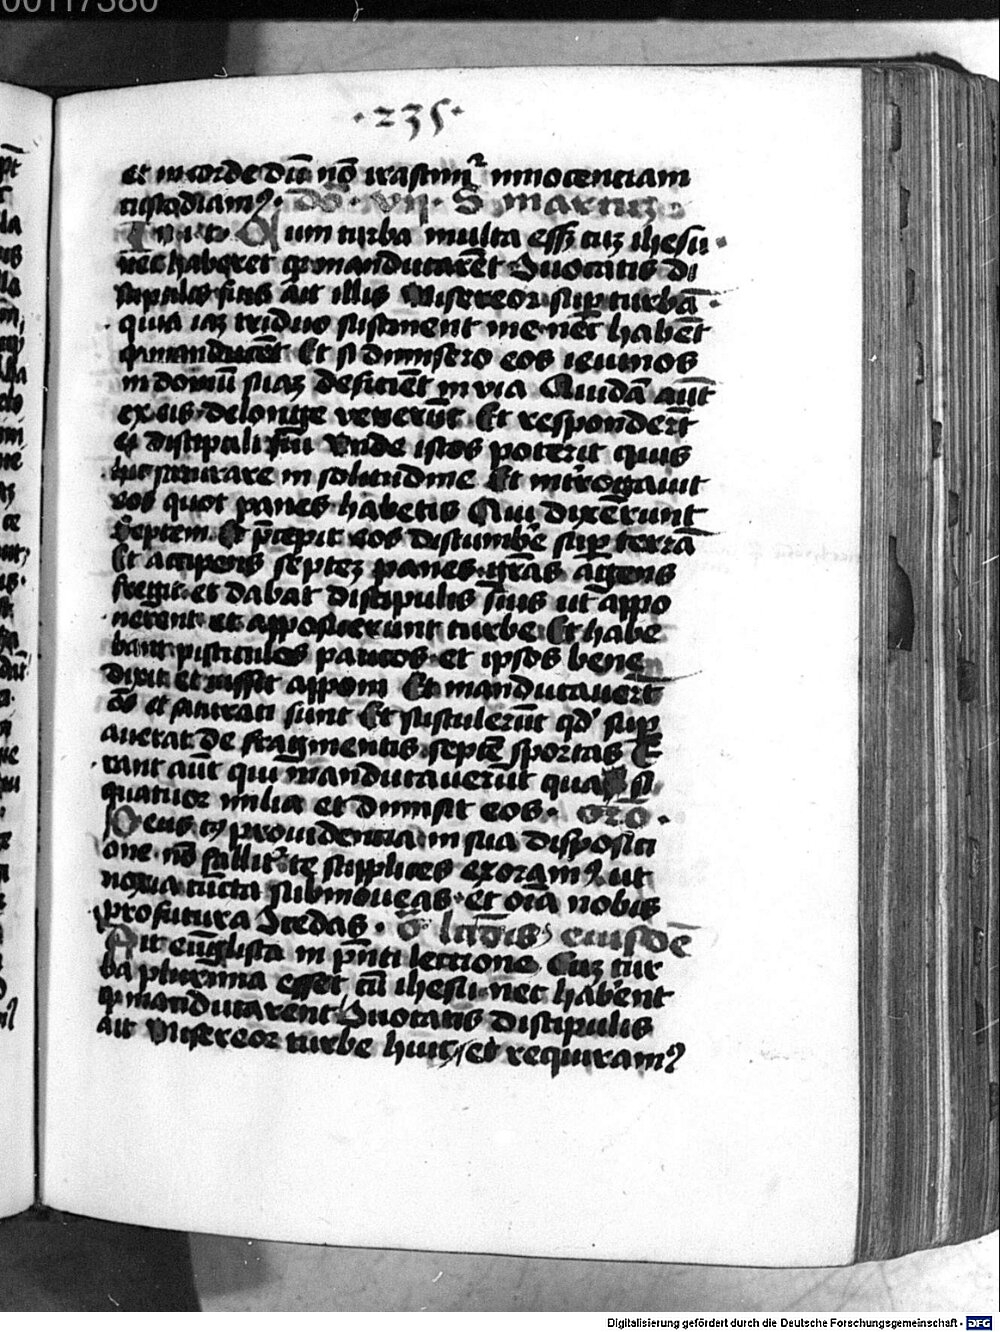 00117380
·235·
et in corde dū nō irascim̄ innocenciam
custodiam9· do· vij· S marcū
In i t· Cum turba multa eēt cuz ihesu·
nec haberet qd manducarēt Cuocatis di
scipulis suis ait illis Misereor sup turbā·
quia iaz triduo sustinent me nec habēt
qd manducēt Et si dimisero eos ieiunos
in domū suaz deficiēt in via Quidā aūt
ex eis de longe venerūt Et responderūt
ei discipuli sui Vnde istos poterit quis
hic saturare in solitudine Et int'rogauit
eos quot panes habetis Qui dixerunt
Septem Et p̄cepit eos discumbe' sup terrā
Et accipiens septez panes gr̄as agens
fregit et dabat discipulis suis ut appo
nerent et apposuerunt turbe Et habe
bant pisciculos paucos et ipsos bene
dixit et iussit apponi Et manducauerūt
oēs et saturati sunt Et sustulerūt qd' sup
auerat de fragmentis septē sportas E
rant aūt qui manducauerūt quasi
quatuor milia et dimisit eos· oro·
Deus c9 prouidentia in sua dispositi
one nō fallit' te supplices exoram9 ut
noxia cuncta submoueas et oīa nobis
profutura Ɔcedas· ō lcīōis eiusdē
Ait euāglista in p̄nti lectione Cuz tur
ba plurima esset cū ihesu nec habent
qd manducarent Ɔuocatis discipulis
ait Misereor turbe huic, et requiram9
Digitalisierung gefördert durch die Deutsche Forschungsgemeinschaft - DFG